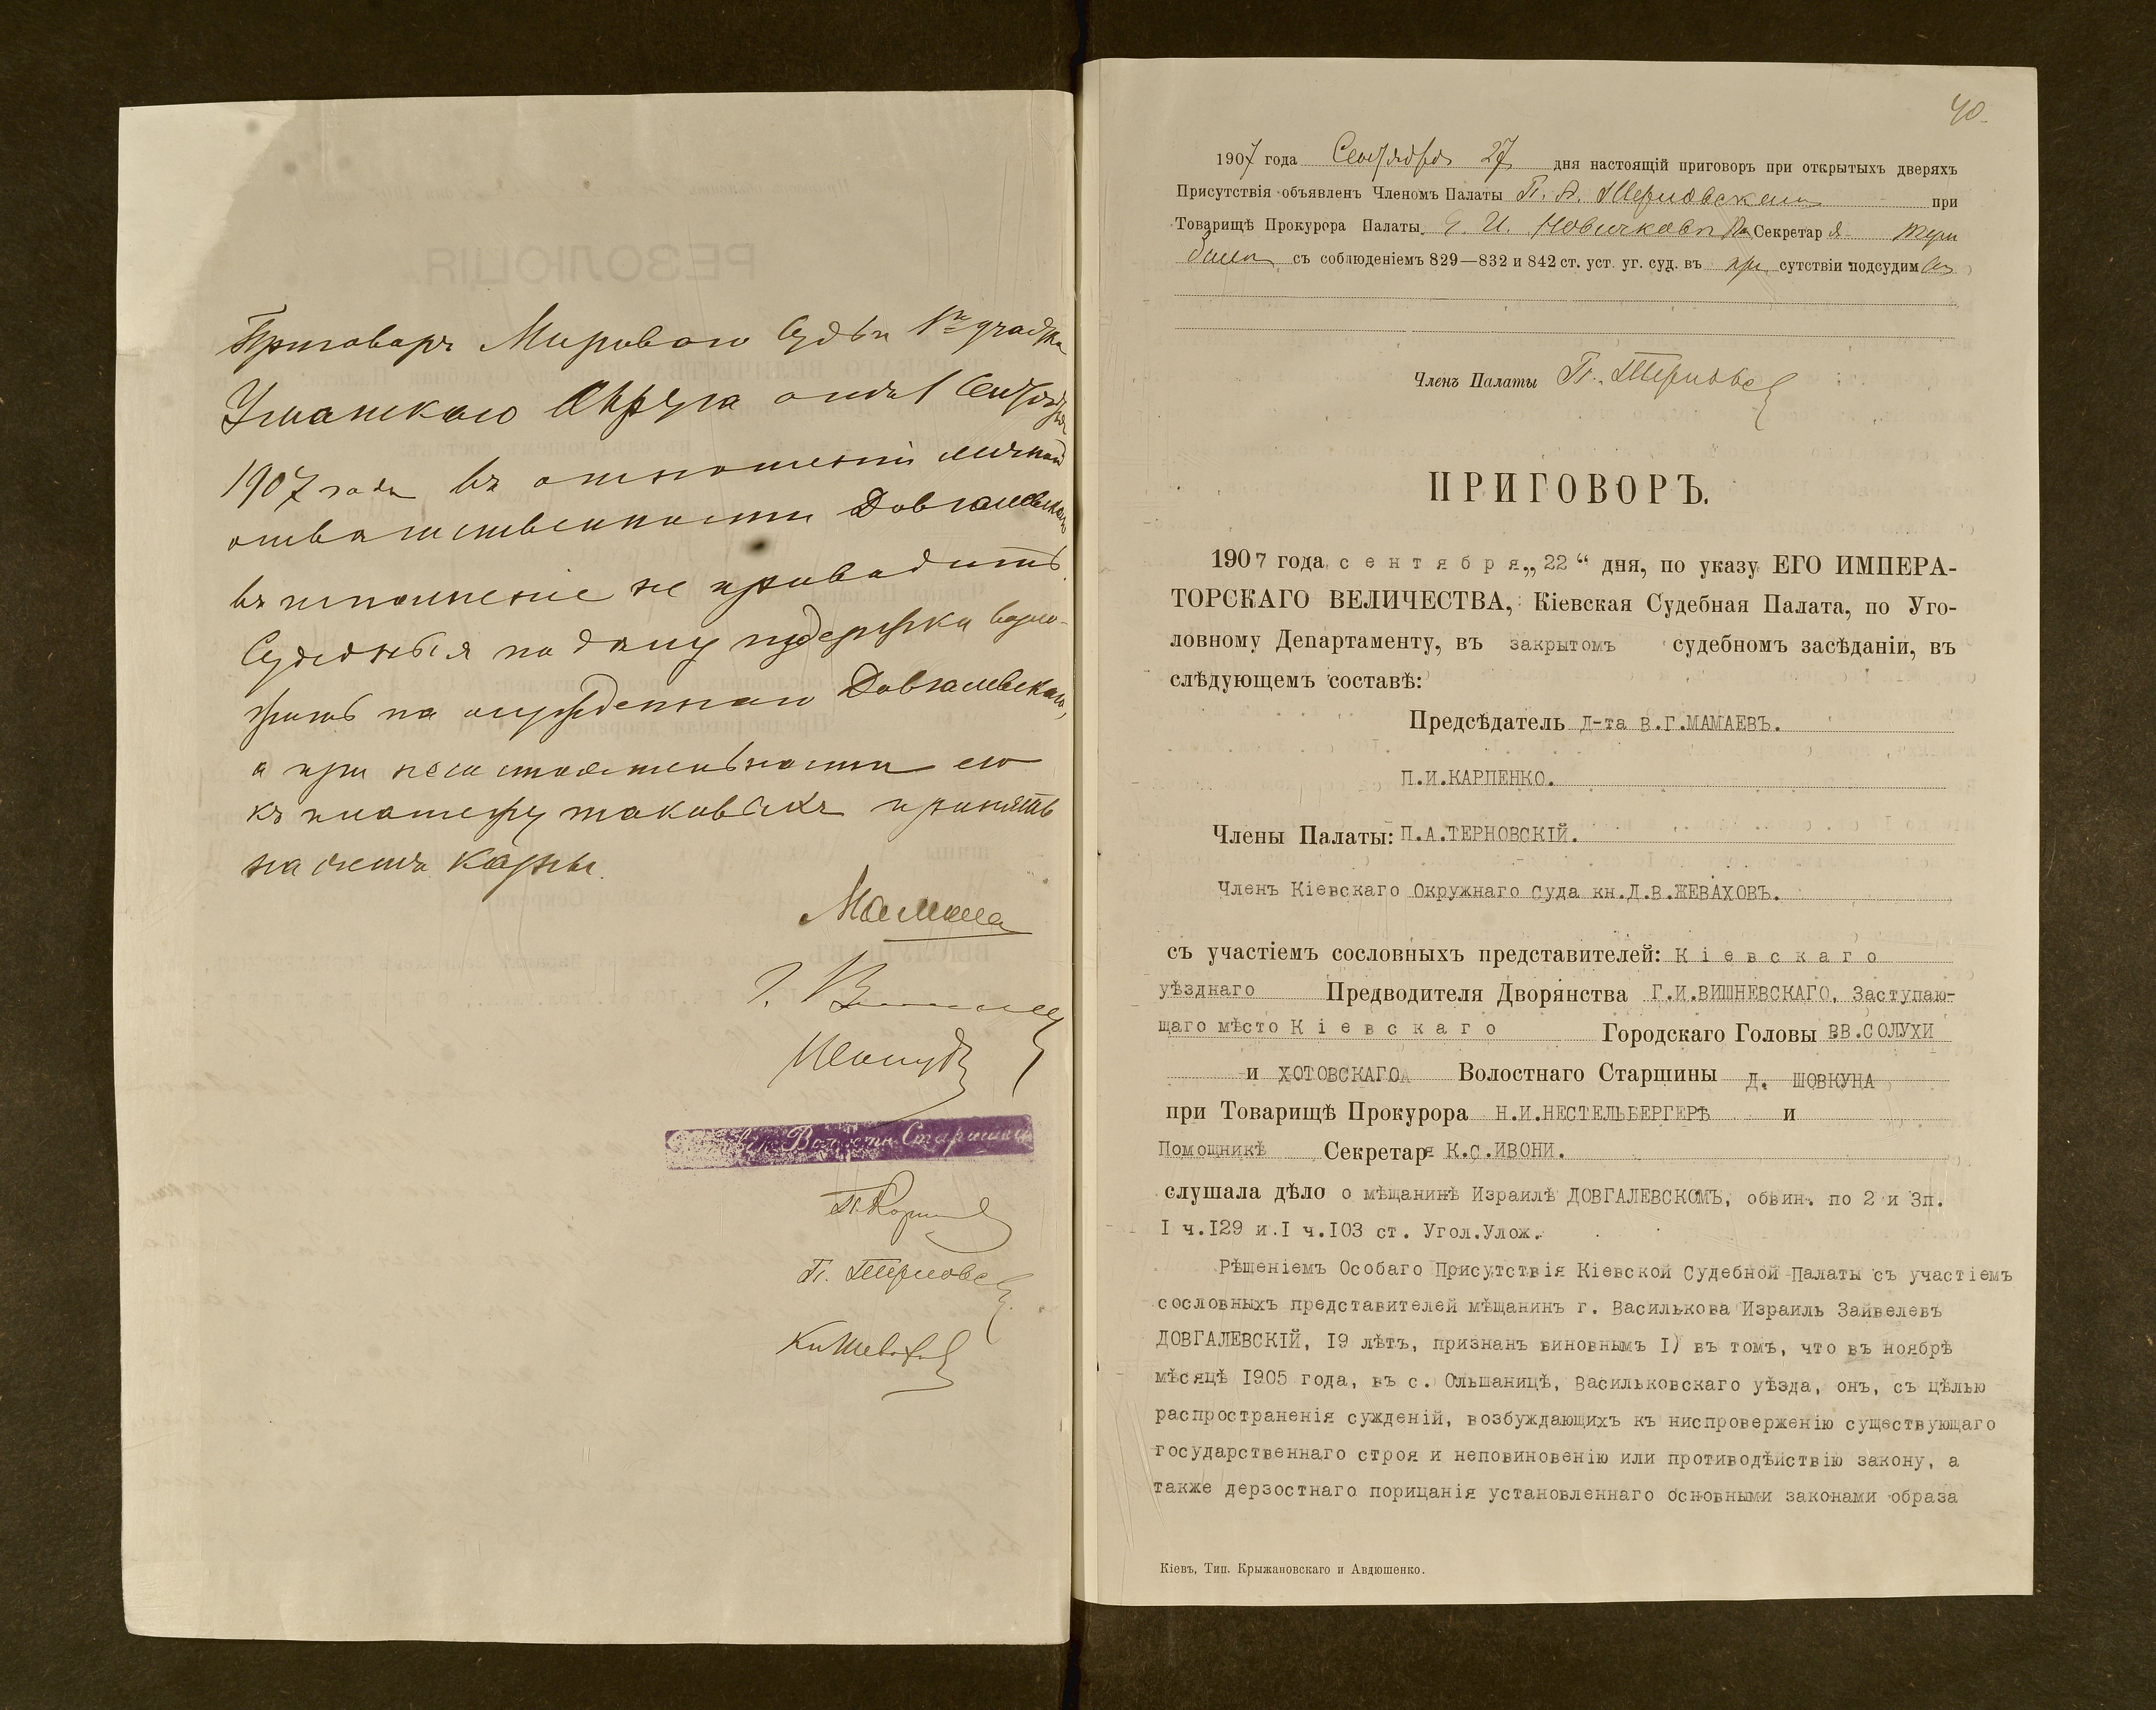 Приговоръ Мирового Судьи 1го участка
Уманскаго Округа отъ 1 Сентября
1907 года въ отношеніи личной
отвѣтственности Довгалевскаго
въ исполненіе не приводить.
Судебныя по дѣлу издержки возло-
жить на осужденнаго Довгалевскаго,
а при несостоятельности его
къ платежу таковыхъ принять
на счетъ казны.
Мамаев
П. Терновс
Кн Жевахов
40.
1907 года Сентября 27 дня настоящій приговоръ при открытыхъ дверяхъ
Присутствія объявленъ Членомъ Палаты П. А. Терновскимъ при
Товарищѣ Прокурора Палаты И. Новичковѣ Секретаря
съ соблюденіемъ 829—832 и 842 ст. уст. уг. суд. въ при сутствіи подсудим
Членъ Палаты П. Терновс
ПРИГОВОРЪ.
1907 года сентября „22“ дня, по указу ЕГО ИМПЕРА-
ТОРСКАГО ВЕЛИЧЕСТВА, Кіевская Судебная Палата, по Уго-
ловному Департаменту, въ закрытомъ судебномъ засѣданіи, въ
слѣдующемъ составѣ:
Предсѣдатель Д-та В.Г.МАМАЕВЪ.
П.И.КАРПЕНКО.
Члены Палаты: П.А.ТЕРНОВСКІЙ.
Членъ Кіевскаго Окружнаго Суда кн.Д.В.ЖЕВАХОВЪ.
съ участіемъ сословныхъ представителей: Кіевскаго
уѣзднаго Предводителя Дворянства Г.И.ВИШНЕВСКАГО, Заступаю-
щаго мѣсто Кіевскаго Городскаго Головы В.В.СОЛУХИ
и ХОТОВСКАГО Волостнаго Старшины Д. ШОВКУНА
при Товарищѣ Прокурора Н.И.НЕСТЕЛЬБЕРГЕРѢ и
Помощникѣ Секретаря К.С.ИВОНИ.
слушала дѣло о мѣщанинѣ Израилѣ ДОВГАЛЕВСКОМЪ, обвин. по 2 и 3п.
I ч.I29 и I ч.I03 ст. Угол.Улож.
Рѣшеніемъ Особаго Присутствія Кіевской Судебной Палаты съ участіемъ
сословныхъ представителей мѣщанинъ г. Василькова Израиль Зайвелевъ
ДОВГАЛЕВСКІЙ, I9 лѣтъ, признанъ виновнымъ I) въ томъ, что въ ноябрѣ
мѣсяцѣ I905 года, въ с. Ольшаницѣ, Васильковскаго уѣзда, онъ, съ цѣлью
распространенія сужденій, возбуждающихъ къ ниспроверженію существующаго
государственнаго строя и неповиновенію или противодѣйствію закону, а
также дерзостнаго порицанія установленнаго основными законами образа
Кіевъ, Тип. Крыжановскаго и Авдюшенко.